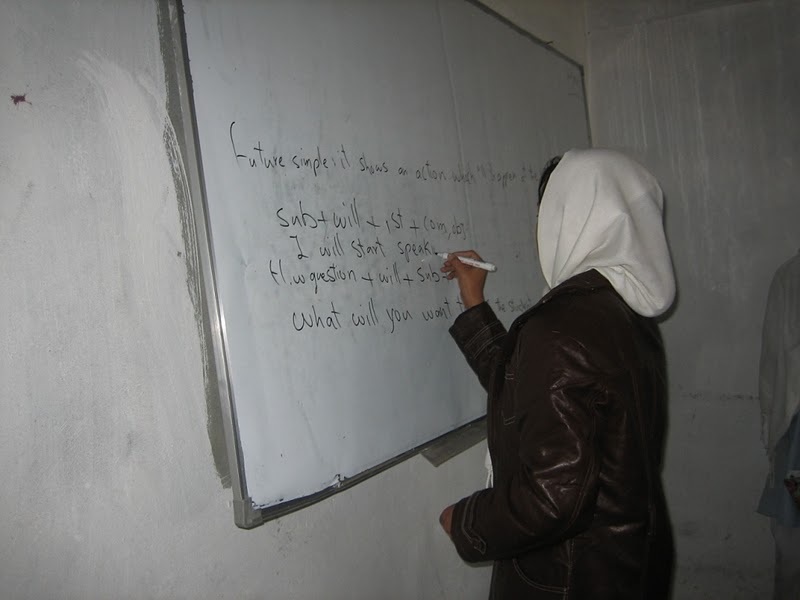 Future simple: it shows an action which 'll happen at the
sub + will + 1st + com, obj.
I will start speaki
H.w question + will + sub +
What will you want t the student